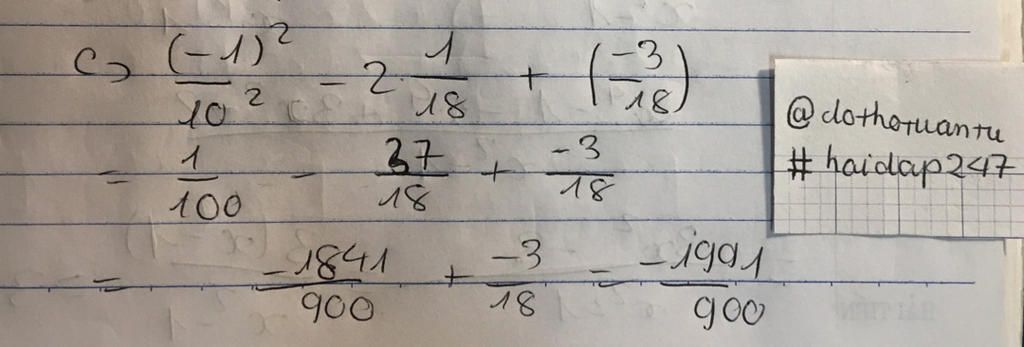 c) (-1)²/10² - 2 1/18 + (-3/18)
= 1/100 - 37/18 + -3/18
= -1841/900 + -3/18 = -1991/900
@dothotuantu
# hoidap247